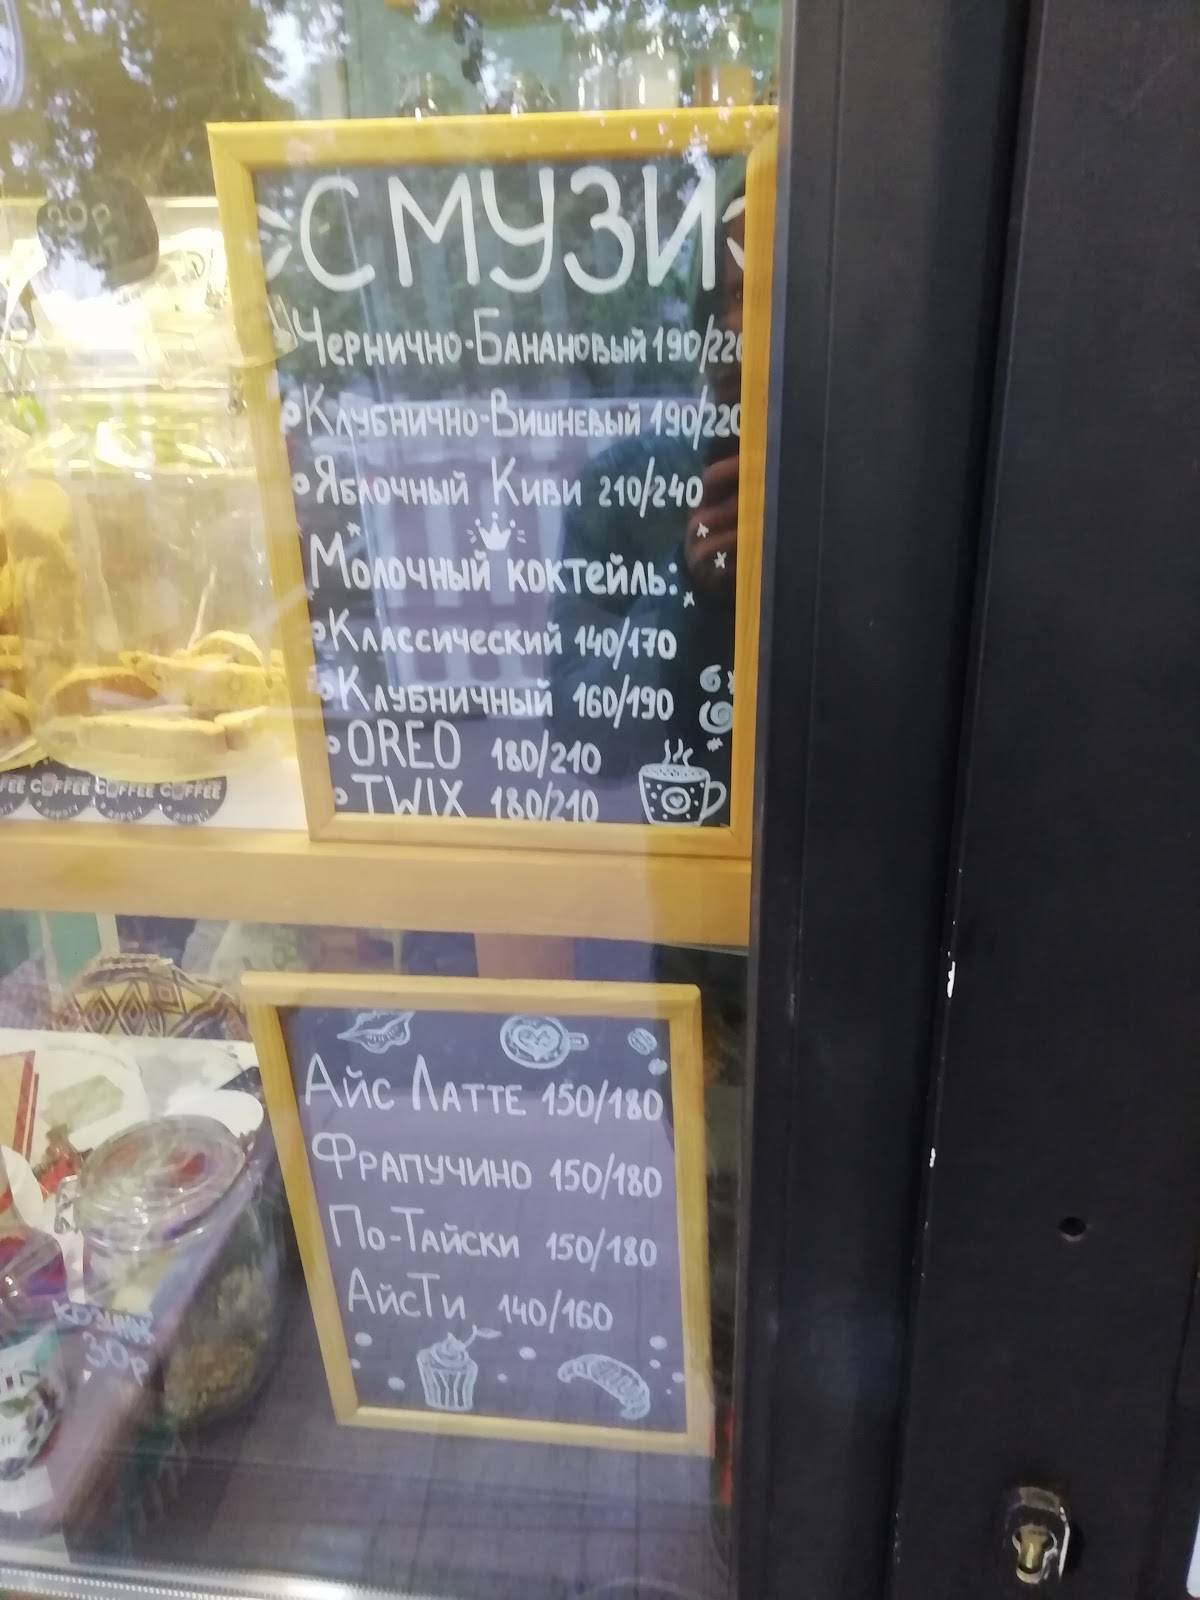 СМУЗИ
Чернично-Банановый 190/220
Клубнично-Вишневый 190/220
Яблочный Киви 210/240
Молочный коктейль:
Классический 140/170
Клубничный 160/190
OREO 180/210
TWIX 180/210
COFFEE COFFEE COFFEE
Айс Латте 150/180
Фрапучино 150/180
По-Тайски 150/180
АйсТи 140/160
30р